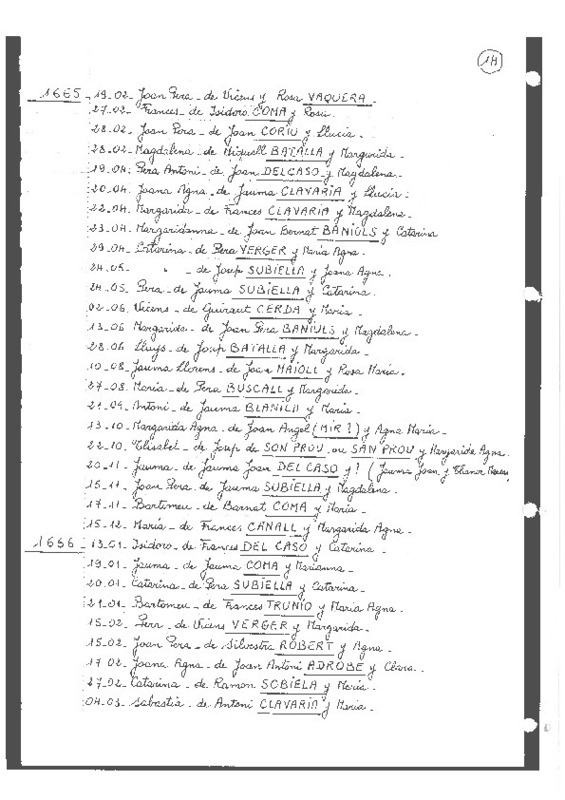 14
1665 - 19.02. Joan Pera - de Vicens y Rosa VAQUERA -
27.02 - Frances - de Isidoro COMA y Rosa.
28.02 - Joan Pera - de Joan CORIU y Llucia -
28.02 - Magdalena - de Miquell BATALLA y Margarida -
19.04. Pera Antoni - de Joan DELCASO y Magdalena -
20.04. Joana Agna - de Jauma CLAVARIA y Llucia -
22.04. Margarida - de Frances CLAVARIA y Magdalena -
23.04 - Margaridanna - de Joan Bernat BANIULS y Catarina
29.04 - Catarina - de Pera VERGER y Maria Agna -
24.05 - " - de Josep SUBIELLA y Joana Agna -
24.05 - Pera - de Jauma SUBIELLA y Catarina -
02.06. Vicens - de Guiraut CERDA y Maria -
13.06 Margarida - de Joan Pera BANIULS y Magdalena -
28.06 Lluys - de Josep BATALLA y Margarida -
10.08. Jauma Llorens - de Joan MAIOLL y Rosa Maria.
27.08. Maria - de Pera BUSCALL y Margarida -
21.09. Antoni - de Jauma BLANICH y Maria -
13.10 - Margarida Agna - de Joan Angel (MIR ?) y Agna Maria -
22.10. Elisabet - de Josep de SON PROU ou SAN PROU y Margarida Agna -
20.11 - Jauma - de Jauma Joan DEL CASO y ? (Jauma Joan y
15.11 - Joan Pera - de Jauma SUBIELLA y Magdalena -
17.11 - Bartomeu - de Barnat COMA y Maria -
15.12 - Maria - de Frances CANALL y Margarida Agna -
1666 - 13.01. Isidoro - de Frances DEL CASO y Catarina -
19.01 - Jauma - de Jauma COMA y Marianna -
20.01 - Catarina - de Pera SUBIELLA y Catarina -
21.01 - Bartomeu - de Frances TRUNIO y Maria Agna -
15.02 - Pera - de Vicens VERGER y Margarida -
15.02 - Joan Pera - de Silvestra ROBERT y Agna -
17.02 - Joana Agna - de Joan Antoni ADROBE y Clara -
27.02 - Catarina - de Ramon SOBIELA y Maria -
04.03 - Sabastia - de Antoni CLAVARIA y Maria -